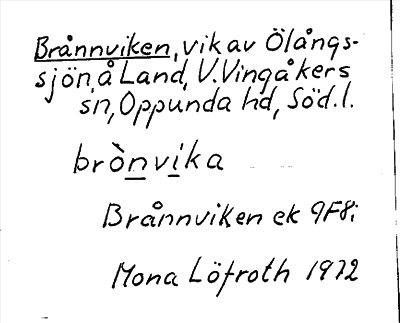 Brånnviken, vik av Ölångs-
sjön, å Land, V. Vingåkers
sn, Oppunda hd, Söd. l.
brònvika
Brånnviken ek 9F8i
Mona Löfroth 1972